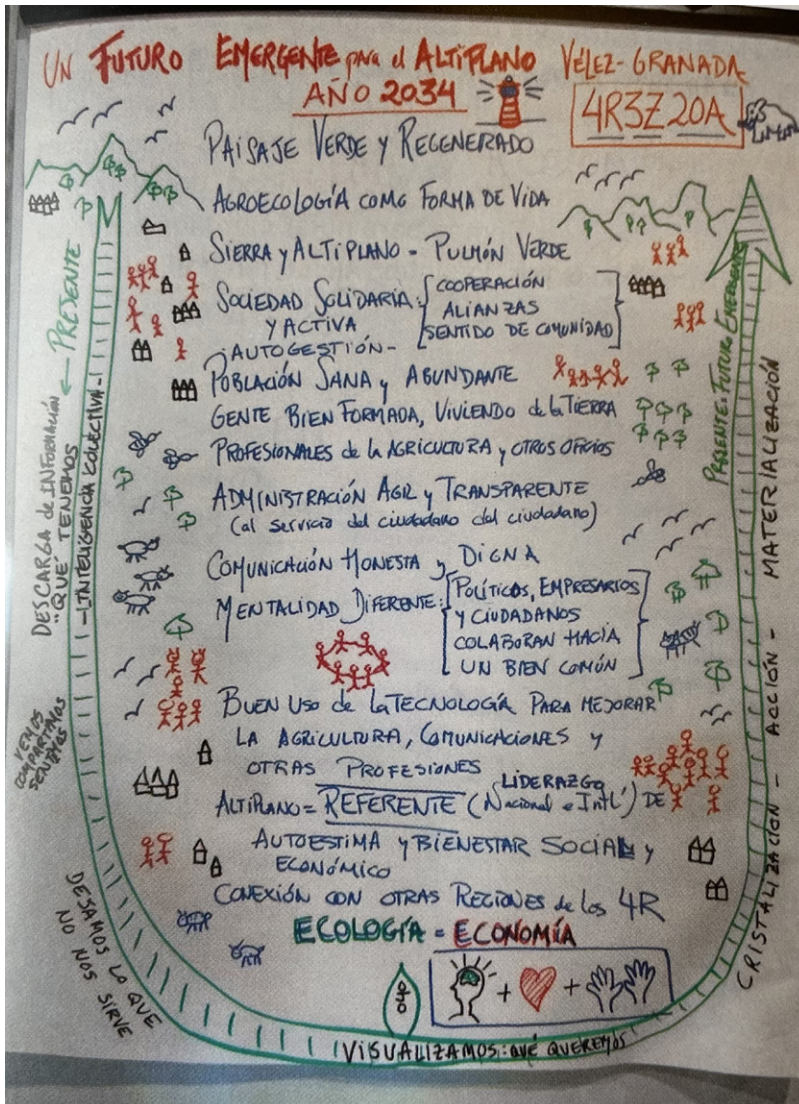 UN FUTURO EMERGENTE para el ALTIPLANO VÉLEZ-GRANADA
AÑO 2034
4R3Z20A
PAISAJE VERDE Y REGENERADO
AGROECOLOGÍA COMO FORMA DE VIDA
SIERRA y ALTIPLANO - PULMÓN VERDE
SOCIEDAD SOLIDARIA: COOPERACIÓN
Y ACTIVA ALIANZAS
SENTIDO DE COMUNIDAD
- AUTOGESTIÓN -
POBLACIÓN SANA y ABUNDANTE
GENTE BIEN FORMADA, VIVIENDO de la TIERRA
PROFESIONALES de la AGRICULTURA y OTROS OFICIOS
ADMINISTRACIÓN AGIL y TRANSPARENTE
(al servicio del ciudadano del ciudadano)
COMUNICACIÓN HONESTA y DIGNA
MENTALIDAD DIFERENTE: POLÍTICOS, EMPRESARIOS
Y CIUDADANOS
COLABORAN HACIA
UN BIEN COMÚN
BUEN USO de la TECNOLOGÍA PARA MEJORAR
LA AGRICULTURA, COMUNICACIONES y
OTRAS PROFESIONES
LIDERAZGO
ALTIPLANO = REFERENTE (Nacional e Intl') DE
AUTOESTIMA y BIENESTAR SOCIAL y
ECONÓMICO
CONEXIÓN CON OTRAS REGIONES de los 4R
ECOLOGÍA = ECONOMÍA
← PRESENTE
DESCARGA de INFORMACIÓN
"QUÉ" TENEMOS
- INTELIGENCIA COLECTIVA -
VEMOS
COMPARTIMOS
SENTIMOS
DEJAMOS LO QUE
NO NOS SIRVE
VISUALIZAMOS: QUÉ QUEREMOS
CRISTALIZACIÓN - ACCIÓN - MATERIALIZACIÓN
PRESENTE: FUTURO EMERGENTE